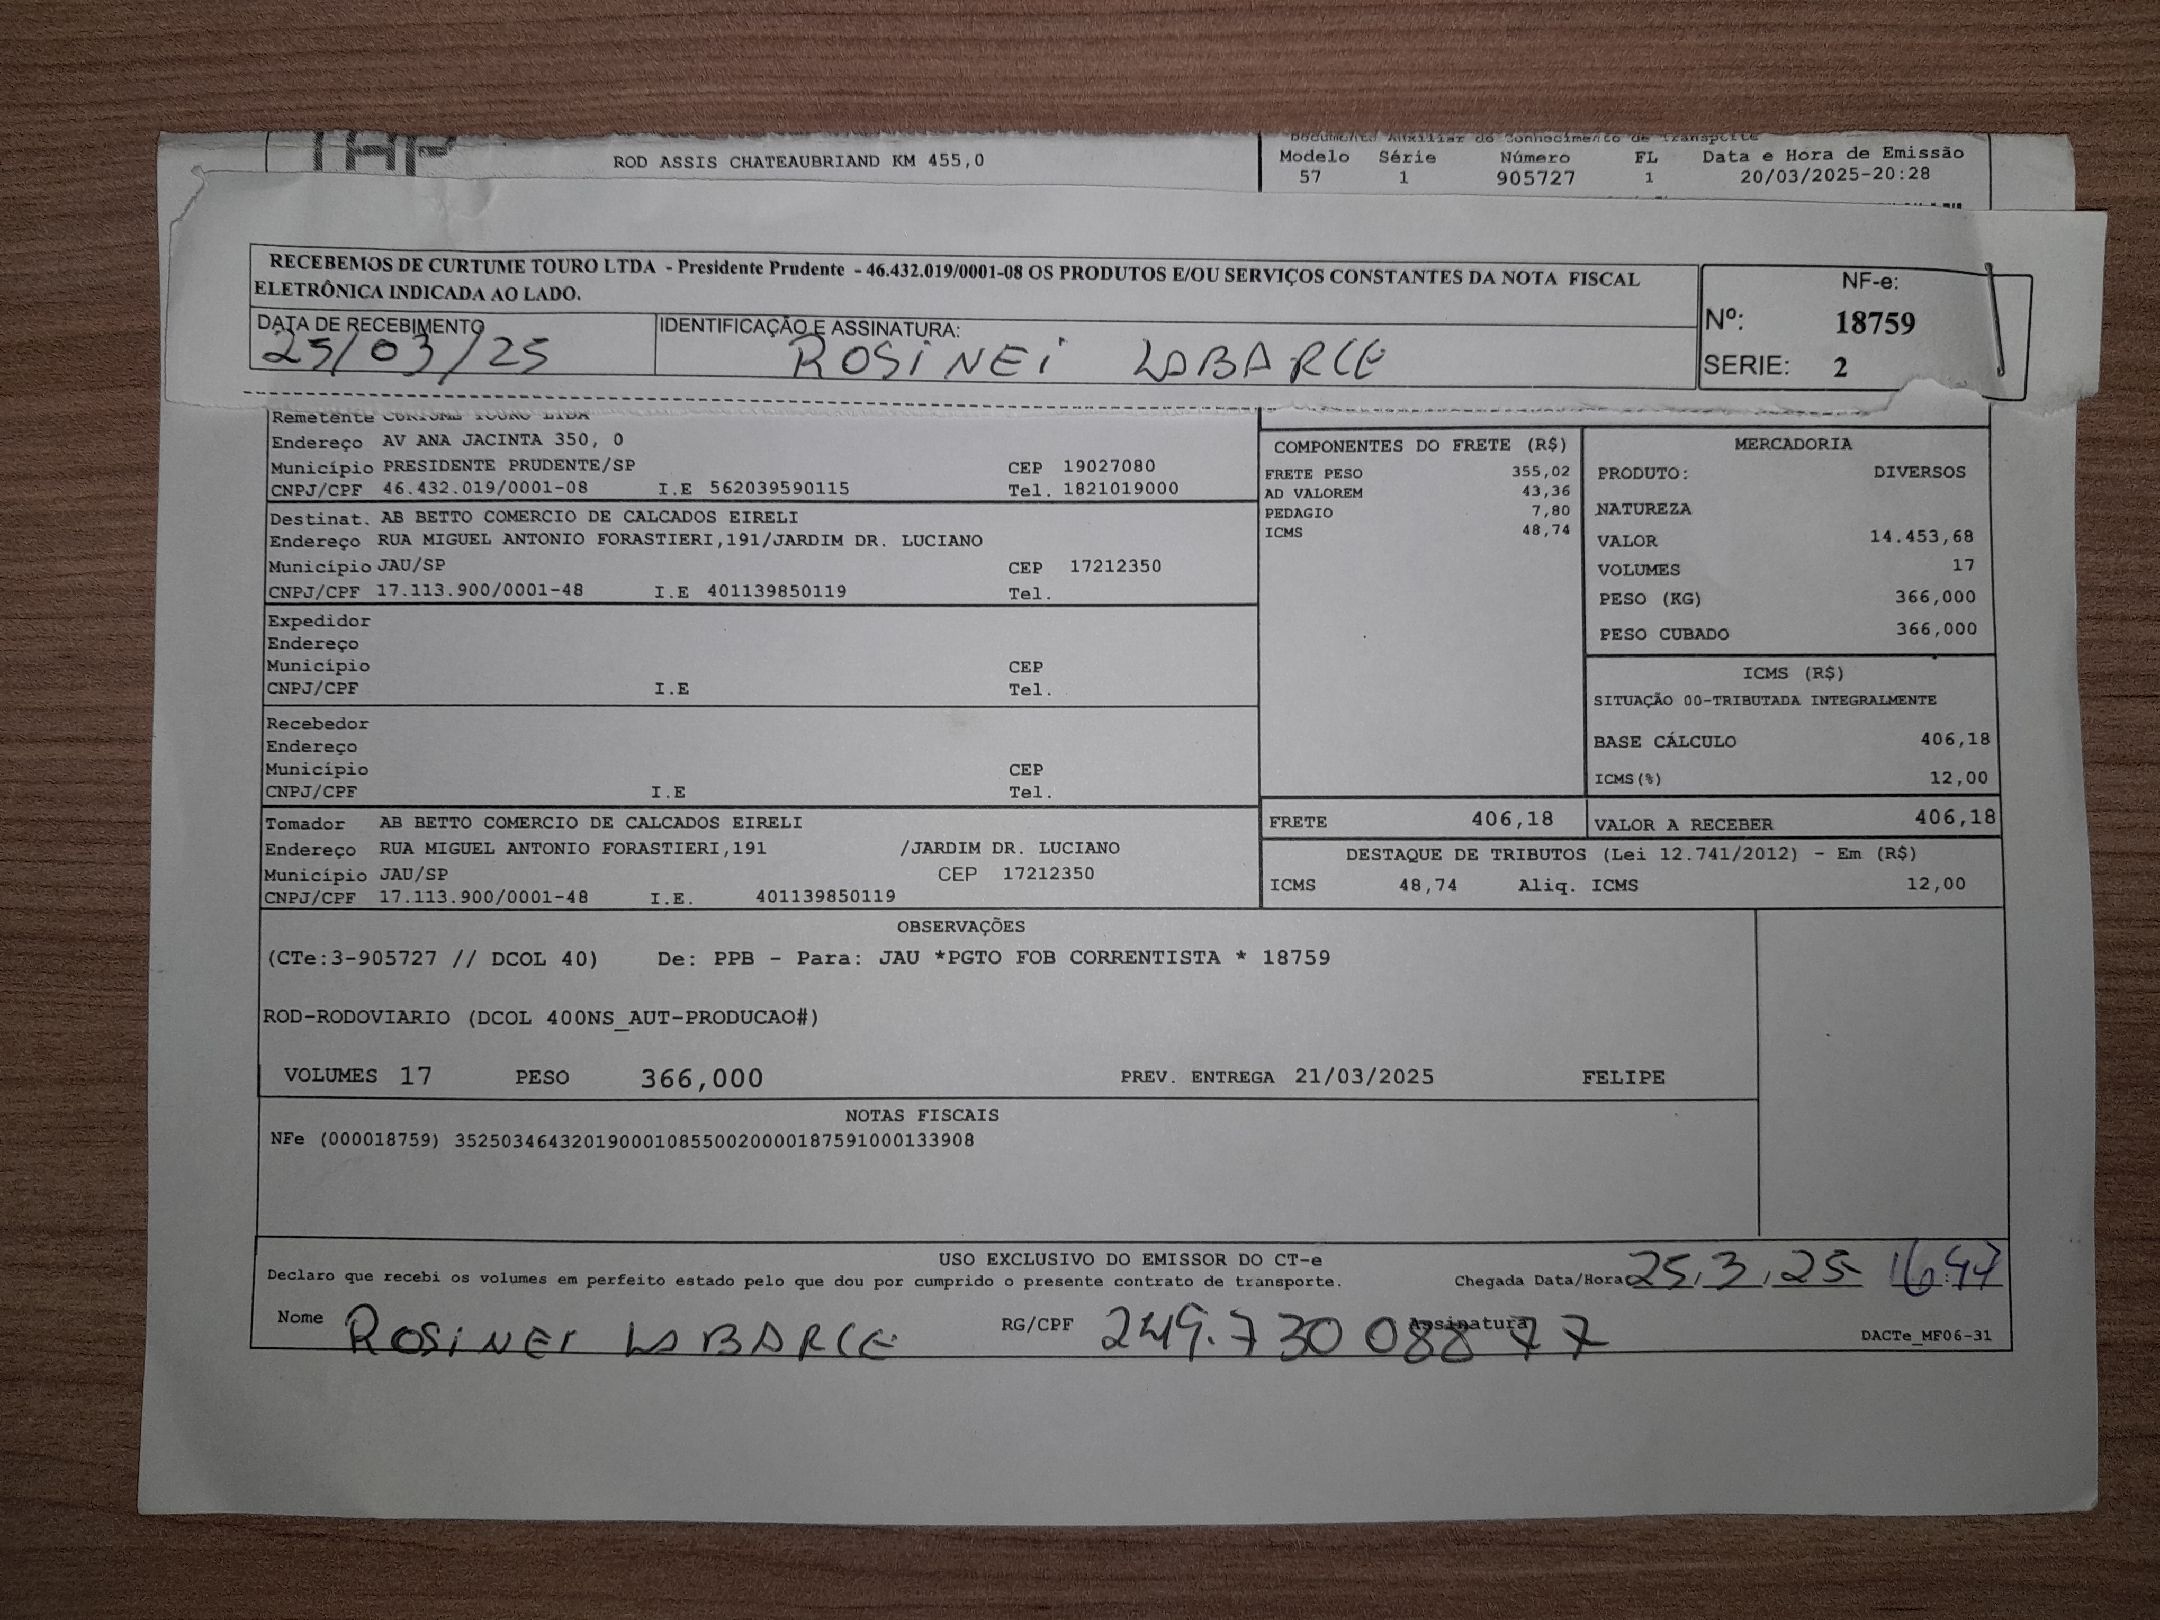 ROD ASSIS CHATEAUBRIAND KM 455,0
Documento Auxiliar do Conhecimento de Transporte
Modelo Série Número FL Data e Hora de Emissão
57 1 905727 1 20/03/2025-20:28
RECEBEMOS DE CURTUME TOURO LTDA - Presidente Prudente - 46.432.019/0001-08 OS PRODUTOS E/OU SERVIÇOS CONSTANTES DA NOTA FISCAL
ELETRÔNICA INDICADA AO LADO.
DATA DE RECEBIMENTO
25/03/25
IDENTIFICAÇÃO E ASSINATURA:
ROSINEI LABARCE
NF-e:
Nº: 18759
SERIE: 2
Remetente CURTUME TOURO LTDA
Endereço AV ANA JACINTA 350, 0
Município PRESIDENTE PRUDENTE/SP CEP 19027080
CNPJ/CPF 46.432.019/0001-08 I.E 562039590115 Tel. 1821019000
Destinat. AB BETTO COMERCIO DE CALCADOS EIRELI
Endereço RUA MIGUEL ANTONIO FORASTIERI,191/JARDIM DR. LUCIANO
Município JAU/SP CEP 17212350
CNPJ/CPF 17.113.900/0001-48 I.E 401139850119 Tel.
Expedidor
Endereço
Município CEP
CNPJ/CPF I.E Tel.
Recebedor
Endereço
Município CEP
CNPJ/CPF I.E Tel.
Tomador AB BETTO COMERCIO DE CALCADOS EIRELI
Endereço RUA MIGUEL ANTONIO FORASTIERI,191 /JARDIM DR. LUCIANO
Município JAU/SP CEP 17212350
CNPJ/CPF 17.113.900/0001-48 I.E. 401139850119
COMPONENTES DO FRETE (R$)
FRETE PESO 355,02
AD VALOREM 43,36
PEDAGIO 7,80
ICMS 48,74
MERCADORIA
PRODUTO: DIVERSOS
NATUREZA
VALOR 14.453,68
VOLUMES 17
PESO (KG) 366,000
PESO CUBADO 366,000
ICMS (R$)
SITUAÇÃO 00-TRIBUTADA INTEGRALMENTE
BASE CÁLCULO 406,18
ICMS(%) 12,00
FRETE 406,18
VALOR A RECEBER 406,18
DESTAQUE DE TRIBUTOS (Lei 12.741/2012) - Em (R$)
ICMS 48,74 Aliq. ICMS 12,00
OBSERVAÇÕES
(CTe:3-905727 // DCOL 40) De: PPB - Para: JAU *PGTO FOB CORRENTISTA * 18759
ROD-RODOVIARIO (DCOL 400NS_AUT-PRODUCAO#)
VOLUMES 17 PESO 366,000 PREV. ENTREGA 21/03/2025 FELIPE
NOTAS FISCAIS
NFe (000018759) 35250346432019000108550020000187591000133908
USO EXCLUSIVO DO EMISSOR DO CT-e
Declaro que recebi os volumes em perfeito estado pelo que dou por cumprido o presente contrato de transporte.
Chegada Data/Hora 25,3,25 16:47
Nome ROSINEI LABARCE RG/CPF 249.730 088 77 Assinatura
DACTe_MF06-31